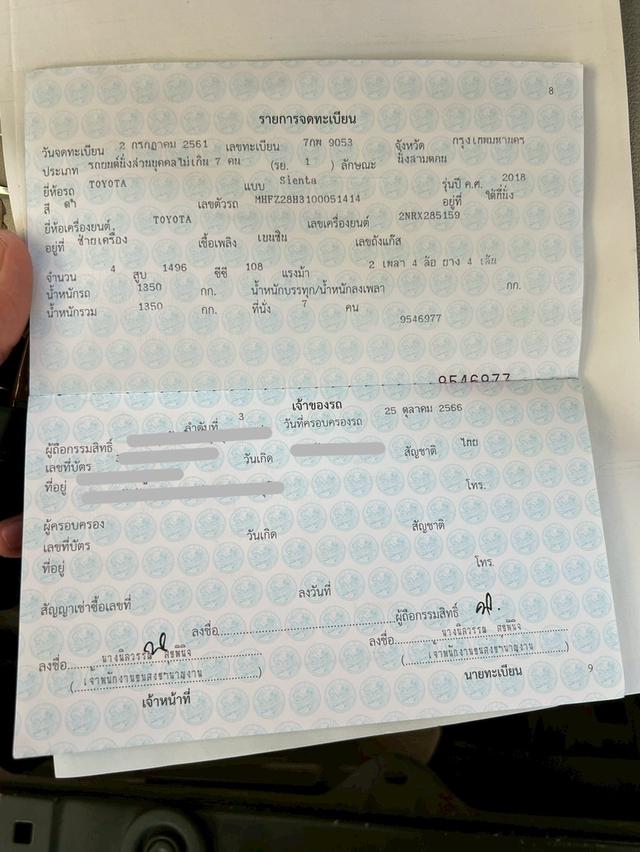 8
รายการจดทะเบียน
วันจดทะเบียน 2 กรกฎาคม 2561 เลขทะเบียน 7กพ 9053 จังหวัด กรุงเทพมหานคร
ประเภท รถยนต์นั่งส่วนบุคคลไม่เกิน 7 คน (รย. 1 ) ลักษณะ นั่งสามตอน
ยี่ห้อรถ TOYOTA แบบ Sienta รุ่นปี ค.ศ. 2018
สี ดำ เลขตัวรถ MHFZ28H3100051414 อยู่ที่ ใต้ที่นั่ง
ยี่ห้อเครื่องยนต์ TOYOTA เลขเครื่องยนต์ 2NRX285159
อยู่ที่ ซ้ายเครื่อง เชื้อเพลิง เบนซิน เลขถังแก๊ส
จำนวน 4 สูบ 1496 ซีซี 108 แรงม้า 2 เพลา 4 ล้อ ยาง 4 เส้น
น้ำหนักรถ 1350 กก. น้ำหนักบรรทุก/น้ำหนักลงเพลา กก.
น้ำหนักรวม 1350 กก. ที่นั่ง 7 คน
9546977
9546977
เจ้าของรถ
ลำดับที่ 3 วันที่ครอบครองรถ 25 ตุลาคม 2566
ผู้ถือกรรมสิทธิ์
เลขที่บัตร วันเกิด สัญชาติ ไทย
ที่อยู่ โทร.
ผู้ครอบครอง
เลขที่บัตร วันเกิด สัญชาติ
ที่อยู่ โทร.
สัญญาเช่าซื้อเลขที่ ลงวันที่
ลงชื่อ ผู้ถือกรรมสิทธิ์
ลงชื่อ นางนิลวรรณ สุขพินิจ ลงชื่อ นางนิลวรรณ สุขพินิจ
(เจ้าพนักงานขนส่งชำนาญงาน) (เจ้าพนักงานขนส่งชำนาญงาน)
เจ้าหน้าที่ นายทะเบียน
9